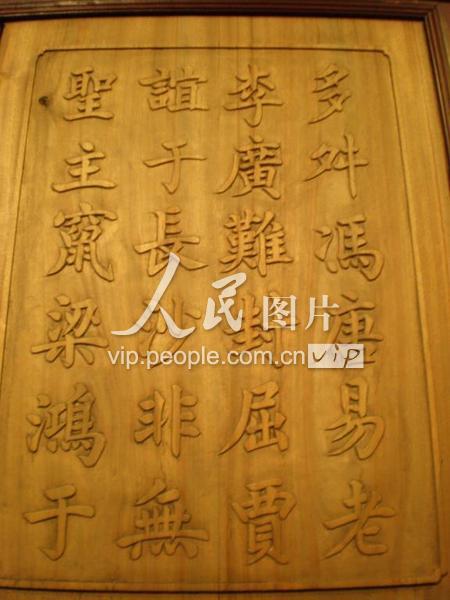 多舛馮唐易老
李廣難封屈賈
誼于長沙非無
聖主竄梁鴻于
人民图片
vip.people.com.cn vip